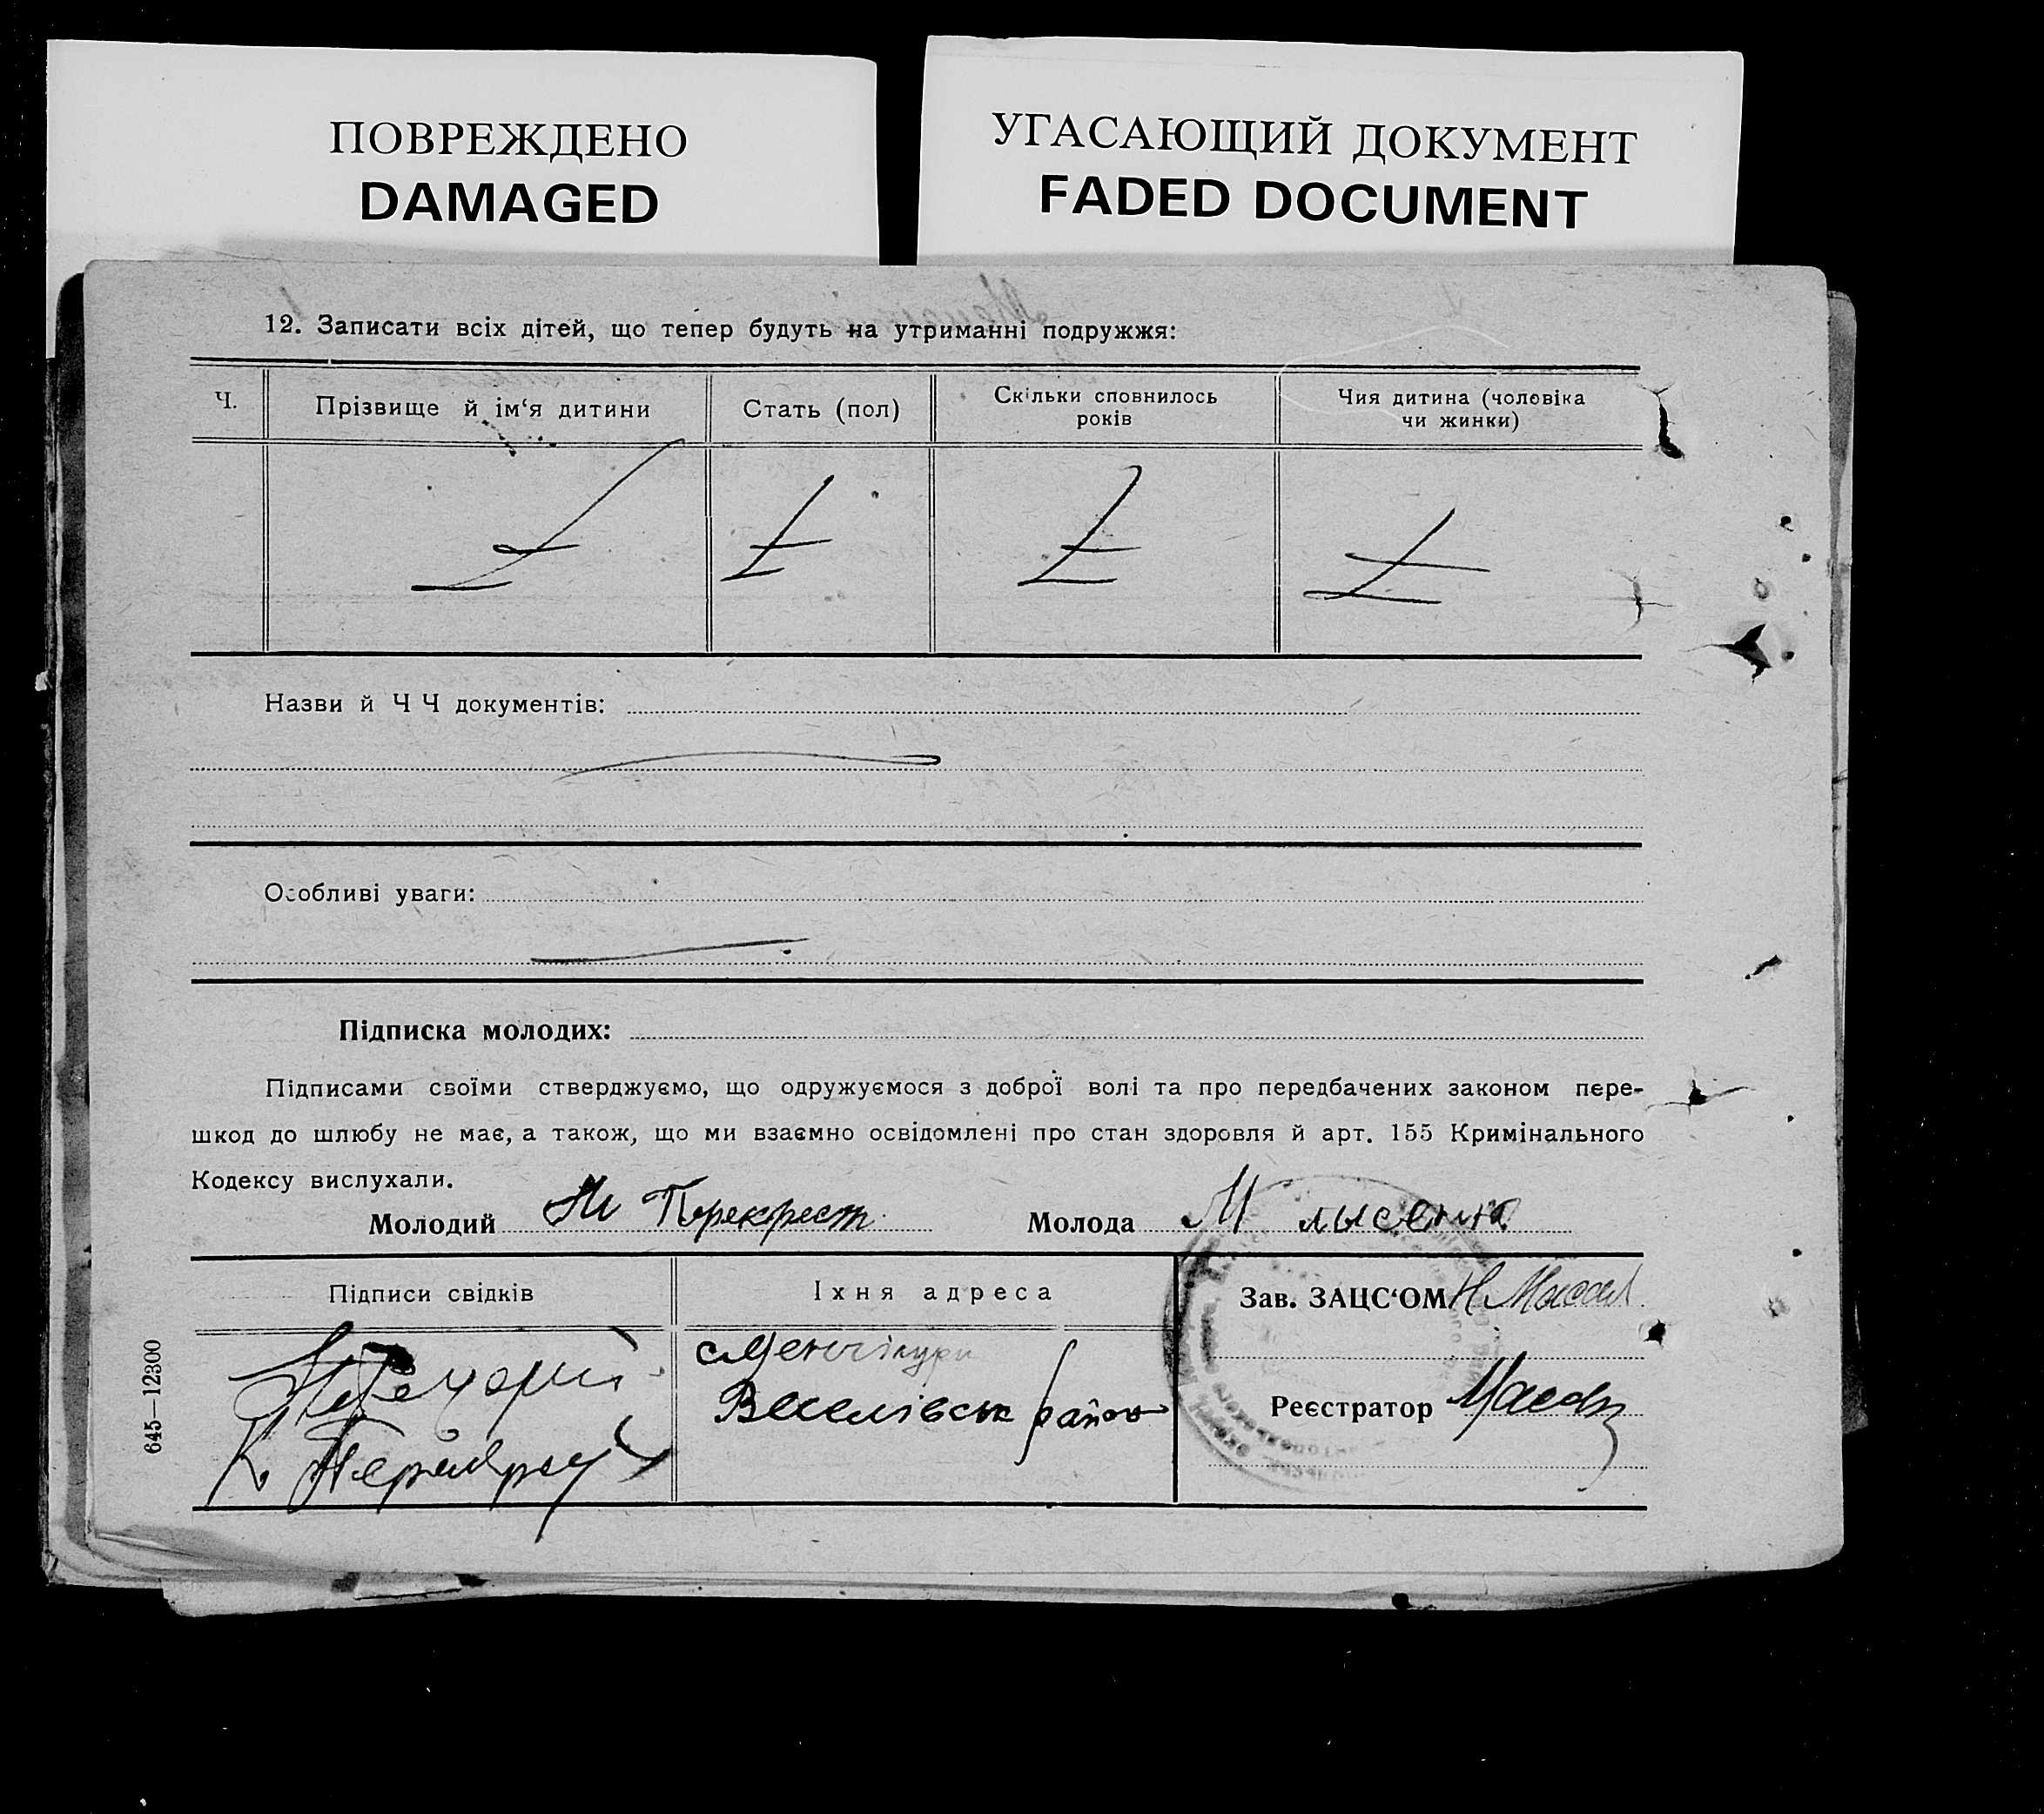 ПОВРЕЖДЕНО
DAMAGED
УГАСАЮЩИЙ ДОКУМЕНТ
FADED DOCUMENT
12. Записати всіх дітей, що тепер будуть на утриманні подружжя:
Ч.
Прізвище й ім‘я дитини
Стать (пол)
Скільки сповнилось
років
Чия дитина (чоловіка
чи жинки)
Назви й Ч Ч документів:
Особливі уваги:
Підписка молодих:
Підписами своїми стверджуємо, що одружуємося з доброї волі та про передбачених законом пере-
шкод до шлюбу не має, а також, що ми взаємно освідомлені про стан здоровля й арт. 155 Кримінального
Кодексу вислухали.
Молодий Перекрест
Молода М лысенка
Підписи свідків
Їхня адреса
Зав. ЗАЦС‘ОМ
Веселівськ район
Реєстратор
645—12300